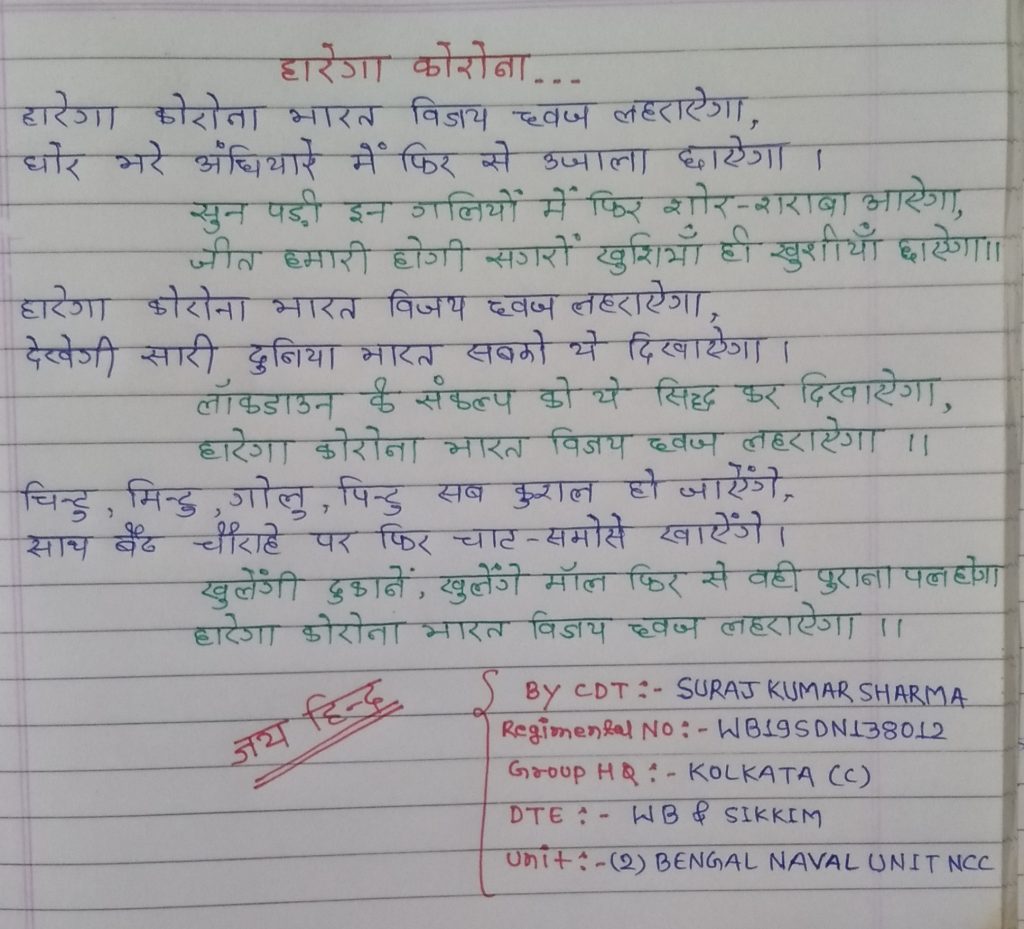 हारेगा कोरोना...
हारेगा कोरोना भारत विजय ध्वज लहराऐगा,
घोर भरे अंधियारे में फिर से उजाला छाऐगा ।
सुन पड़ी इन गलियों में फिर शोर-शराबा आऐगा,
जीत हमारी होगी सगरों खुशियाँ ही खुशीयाँ छाऐगा॥
हारेगा कोरोना भारत विजय ध्वज लहराऐगा,
देखेगी सारी दुनिया भारत सबको ये दिखाऐगा ।
लॉकडाउन के संकल्प को ये सिद्ध कर दिखाऐगा,
हारेगा कोरोना भारत विजय ध्वज लहराऐगा ॥
चिन्टु, मिन्टु, गोलु, पिन्टु सब कुशल हो जाऐंगे,
साथ बैठ चौराहे पर फिर चाट-समोसे खाऐंगे ।
खुलेंगी दुकानें, खुलेंगे मॉल फिर से वही पुराना पल होगा
हारेगा कोरोना भारत विजय ध्वज लहराऐगा ॥
जय हिन्द
BY CDT:- SURAJ KUMAR SHARMA
Regimental NO:- WB19SDN138012
Group HQ:- KOLKATA (C)
DTE:- WB & SIKKIM
Unit:- (2) BENGAL NAVAL UNIT NCC